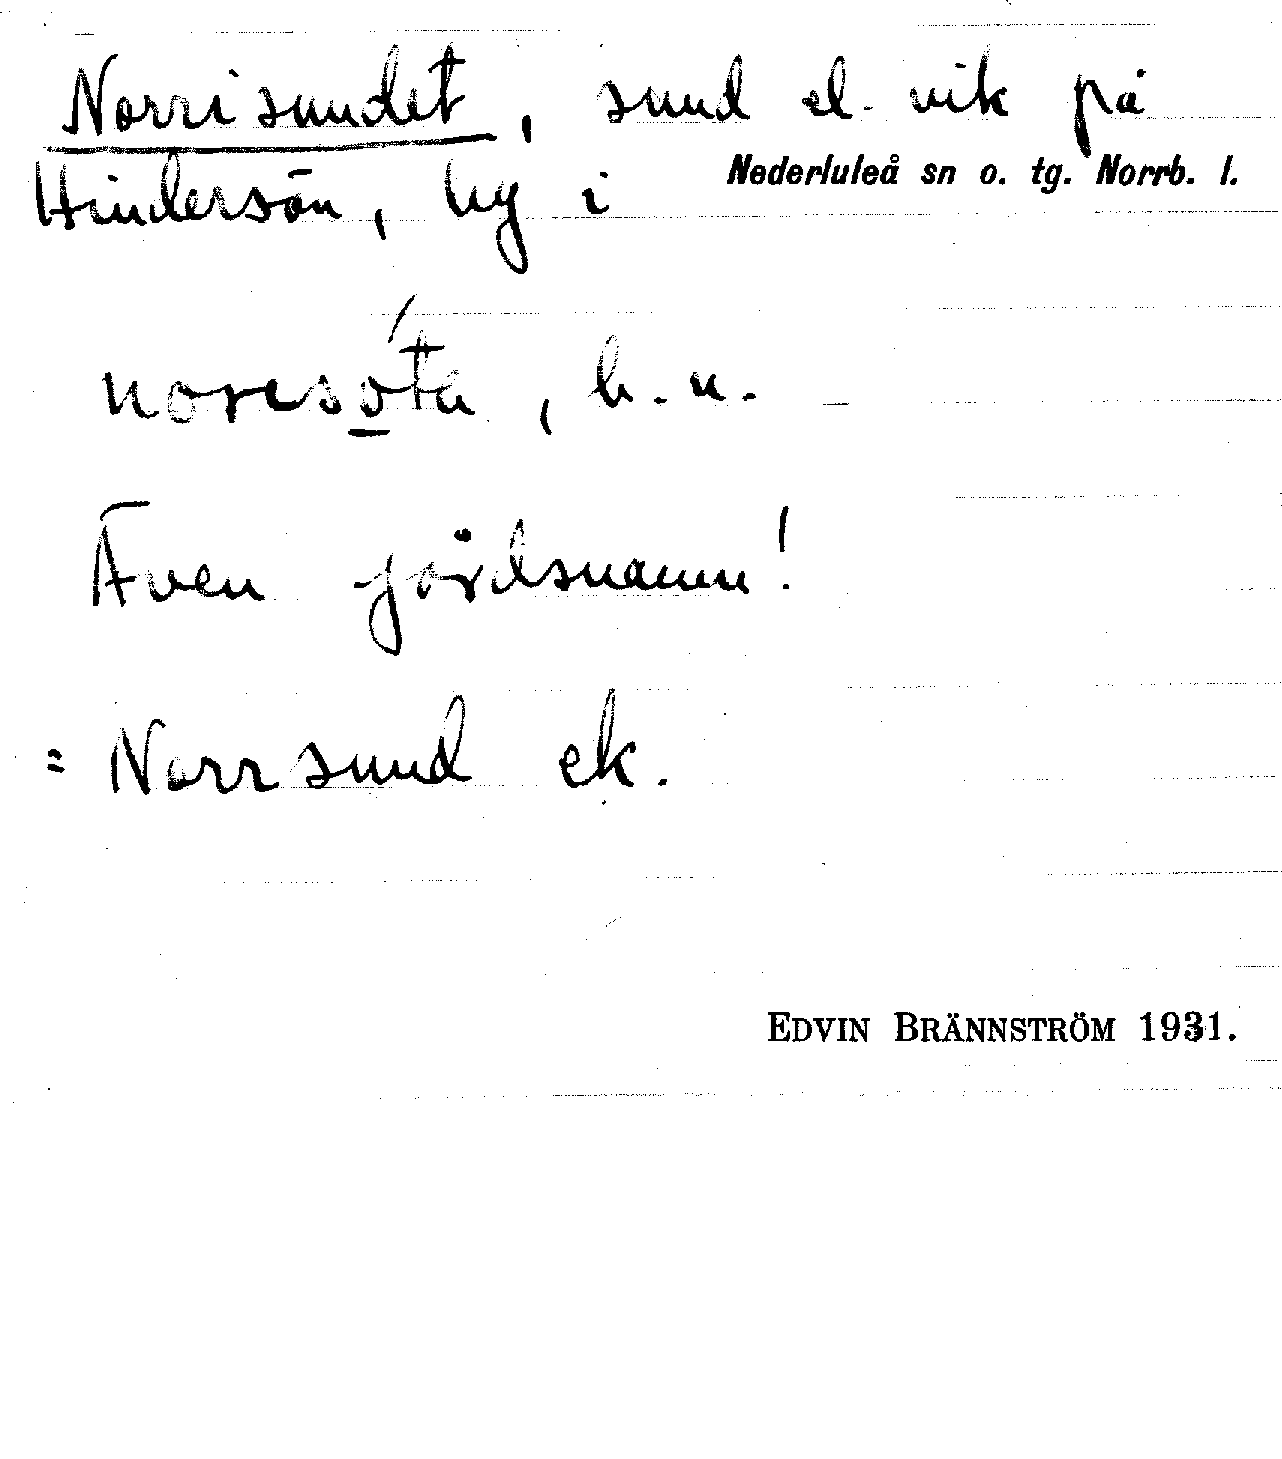 Norrisundet, sund el. vik på
Hindersön, by i Nederluleå sn o. tg. Norrb. l.
noreso̲ta, b. n.
Även gårdsnamn!
= Norrsund ek.
EDVIN BRÄNNSTRÖM 1931.